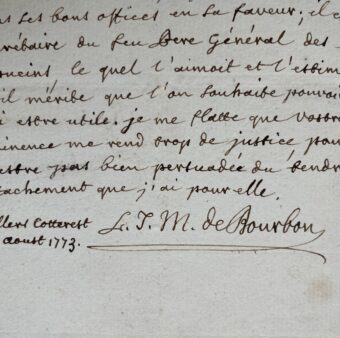 ns ses bons offices en sa faveur; il e
crébaire du feu Pere Général des
rueins le quel l'aimoit et l'estim
il méribe que l'on souhaibe pouvoi
i estre utile. je me flatte que vostre
minence me rend trop de justice pou
estre pas bien persuadée du tendr
tachement que j'ai pour elle.
llers Cotterest
aoust 1773.
L. J. M. de Bourbon